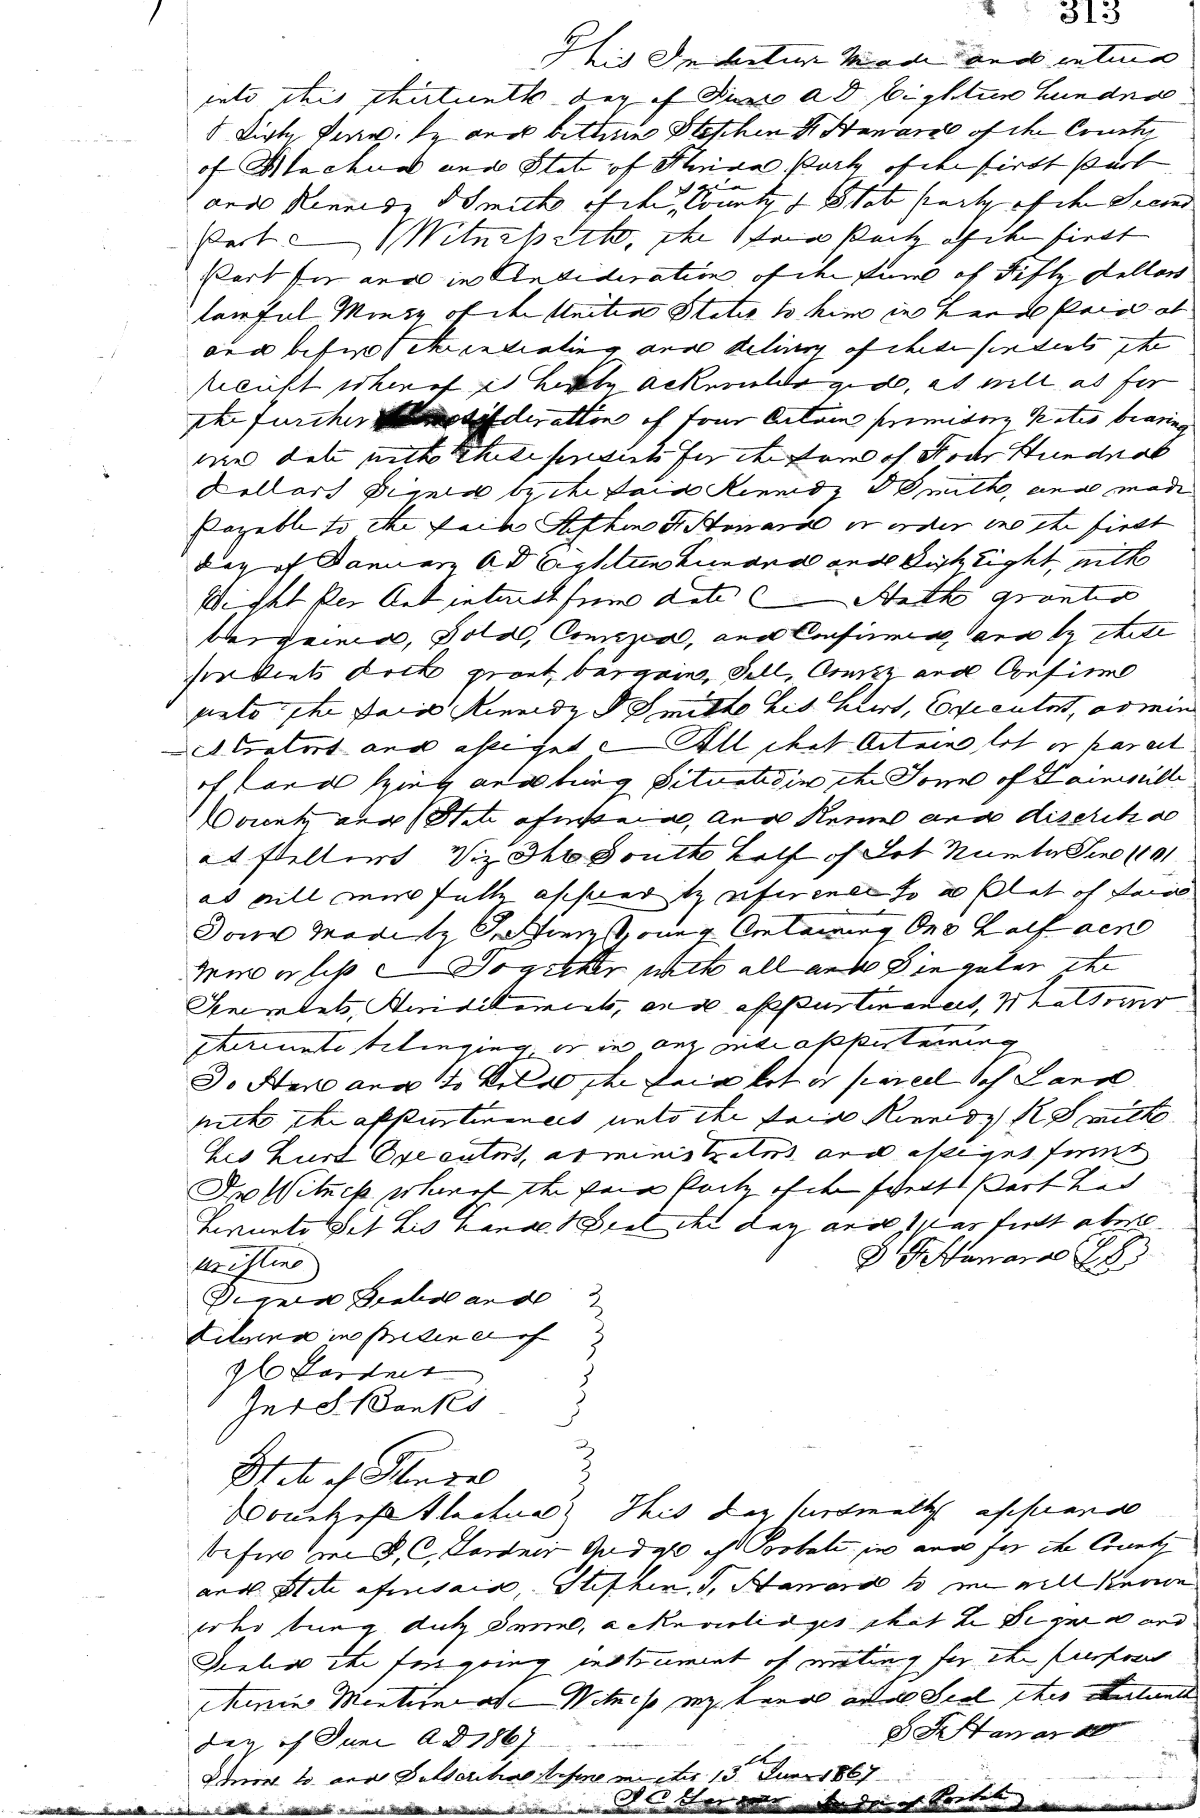 313
This Indenture Made and entered
into this thirteenth day of June A D Eighteen hundred
& Sixty Seven. by and between Stephen F Haward of the County
of Alachua and State of Florida Party of the first Part
and Kennedy Smith of the said County & State party of the Second
Part Witnesseth, the said Party of the first
Part for and in Consideration of the sum of Fifty dollars
lawful Money of the United States to him in hand Paid at
and before the ensealing and delivery of these presents the
receipt whereof is hereby acknowledged, as well as for
the further Consideration of four Certain promisory Notes bearing
even date with these presents for the sum of Four Hundred
dollars Signed by the said Kennedy Smith, and made
Payable to the said Stephen F Haward or order on the first
day of January A D Eighteen hundred and Sixty Eight, with
Eight Per Cent interest from date Hath granted
bargained, Sold, Conveyed, and Confirmed, and by these
presents doth grant, bargain, Sell, Convey and Confirm
unto the said Kennedy Smith his heirs, Executors, admin
istrators and assigns All that Certain lot or parcel
of Land lying and being Situated in the Town of Gainesville
County and State aforesaid, and Known and discribed
as follows Viz The South half of Lot Number Ten (10)
as will more fully appear by reference to a Plat of said
Town Made by Henry Young Containing One half acre
more or less Together with all and Singular the
Tenements, Heriditaments, and appurtinances, Whatsoever
thereunto belonging, or in any wise appertaining
To Have and to Hold the said lot or parcel of Land
with the appurtinances unto the said Kennedy K Smith
his heirs Executors, administrators and assigns forever
In Witness whereof the said Party of the first Part has
hereunto Set his hand & Seal the day and year first above
written S F Haward LS
Signed Sealed and
delivered in presence of
Gardner
Jno S. Banks
State of Florida
County of Alachua This day personally appeared
before me J, C, Gardner Judge of Probate, in and for the County
and State aforesaid, Stephen, F, Haward to me well known
who being duly Sworn, acknowledges that he Signed and
Sealed the foregoing instrument of writing for the purposes
therein Mentioned Witness my hand and Seal this thirteenth
day of June A D 1867 S F Haward
Sworn to and Subscribed before me this 13th June 1867
J C Gardner Judge of Probate